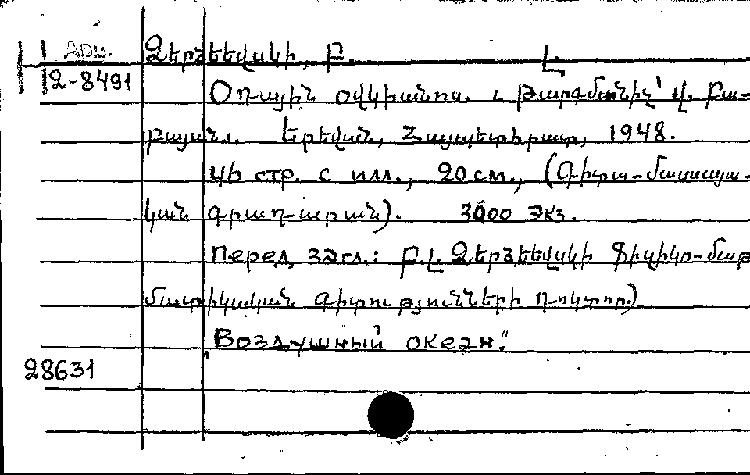 Арм. Ձերձեևսկի, Բ. Լ.
2-8491
Օդային օվկիանոս. թարգմանիչ՝ Վ. Բա-
բայան. Երեվան, Հայպետհրատ, 1948.
46 стр. с илл., 20 см., (Գիտա-մասսայա-
կան գրադարան). 3000 экз.
Перед загл.: Բ. Լ. Ձերձեևսկի Ֆիզիկո-մաթ
մատիկական գիտությունների դոկտոր)
"Воздушный океан."
28631